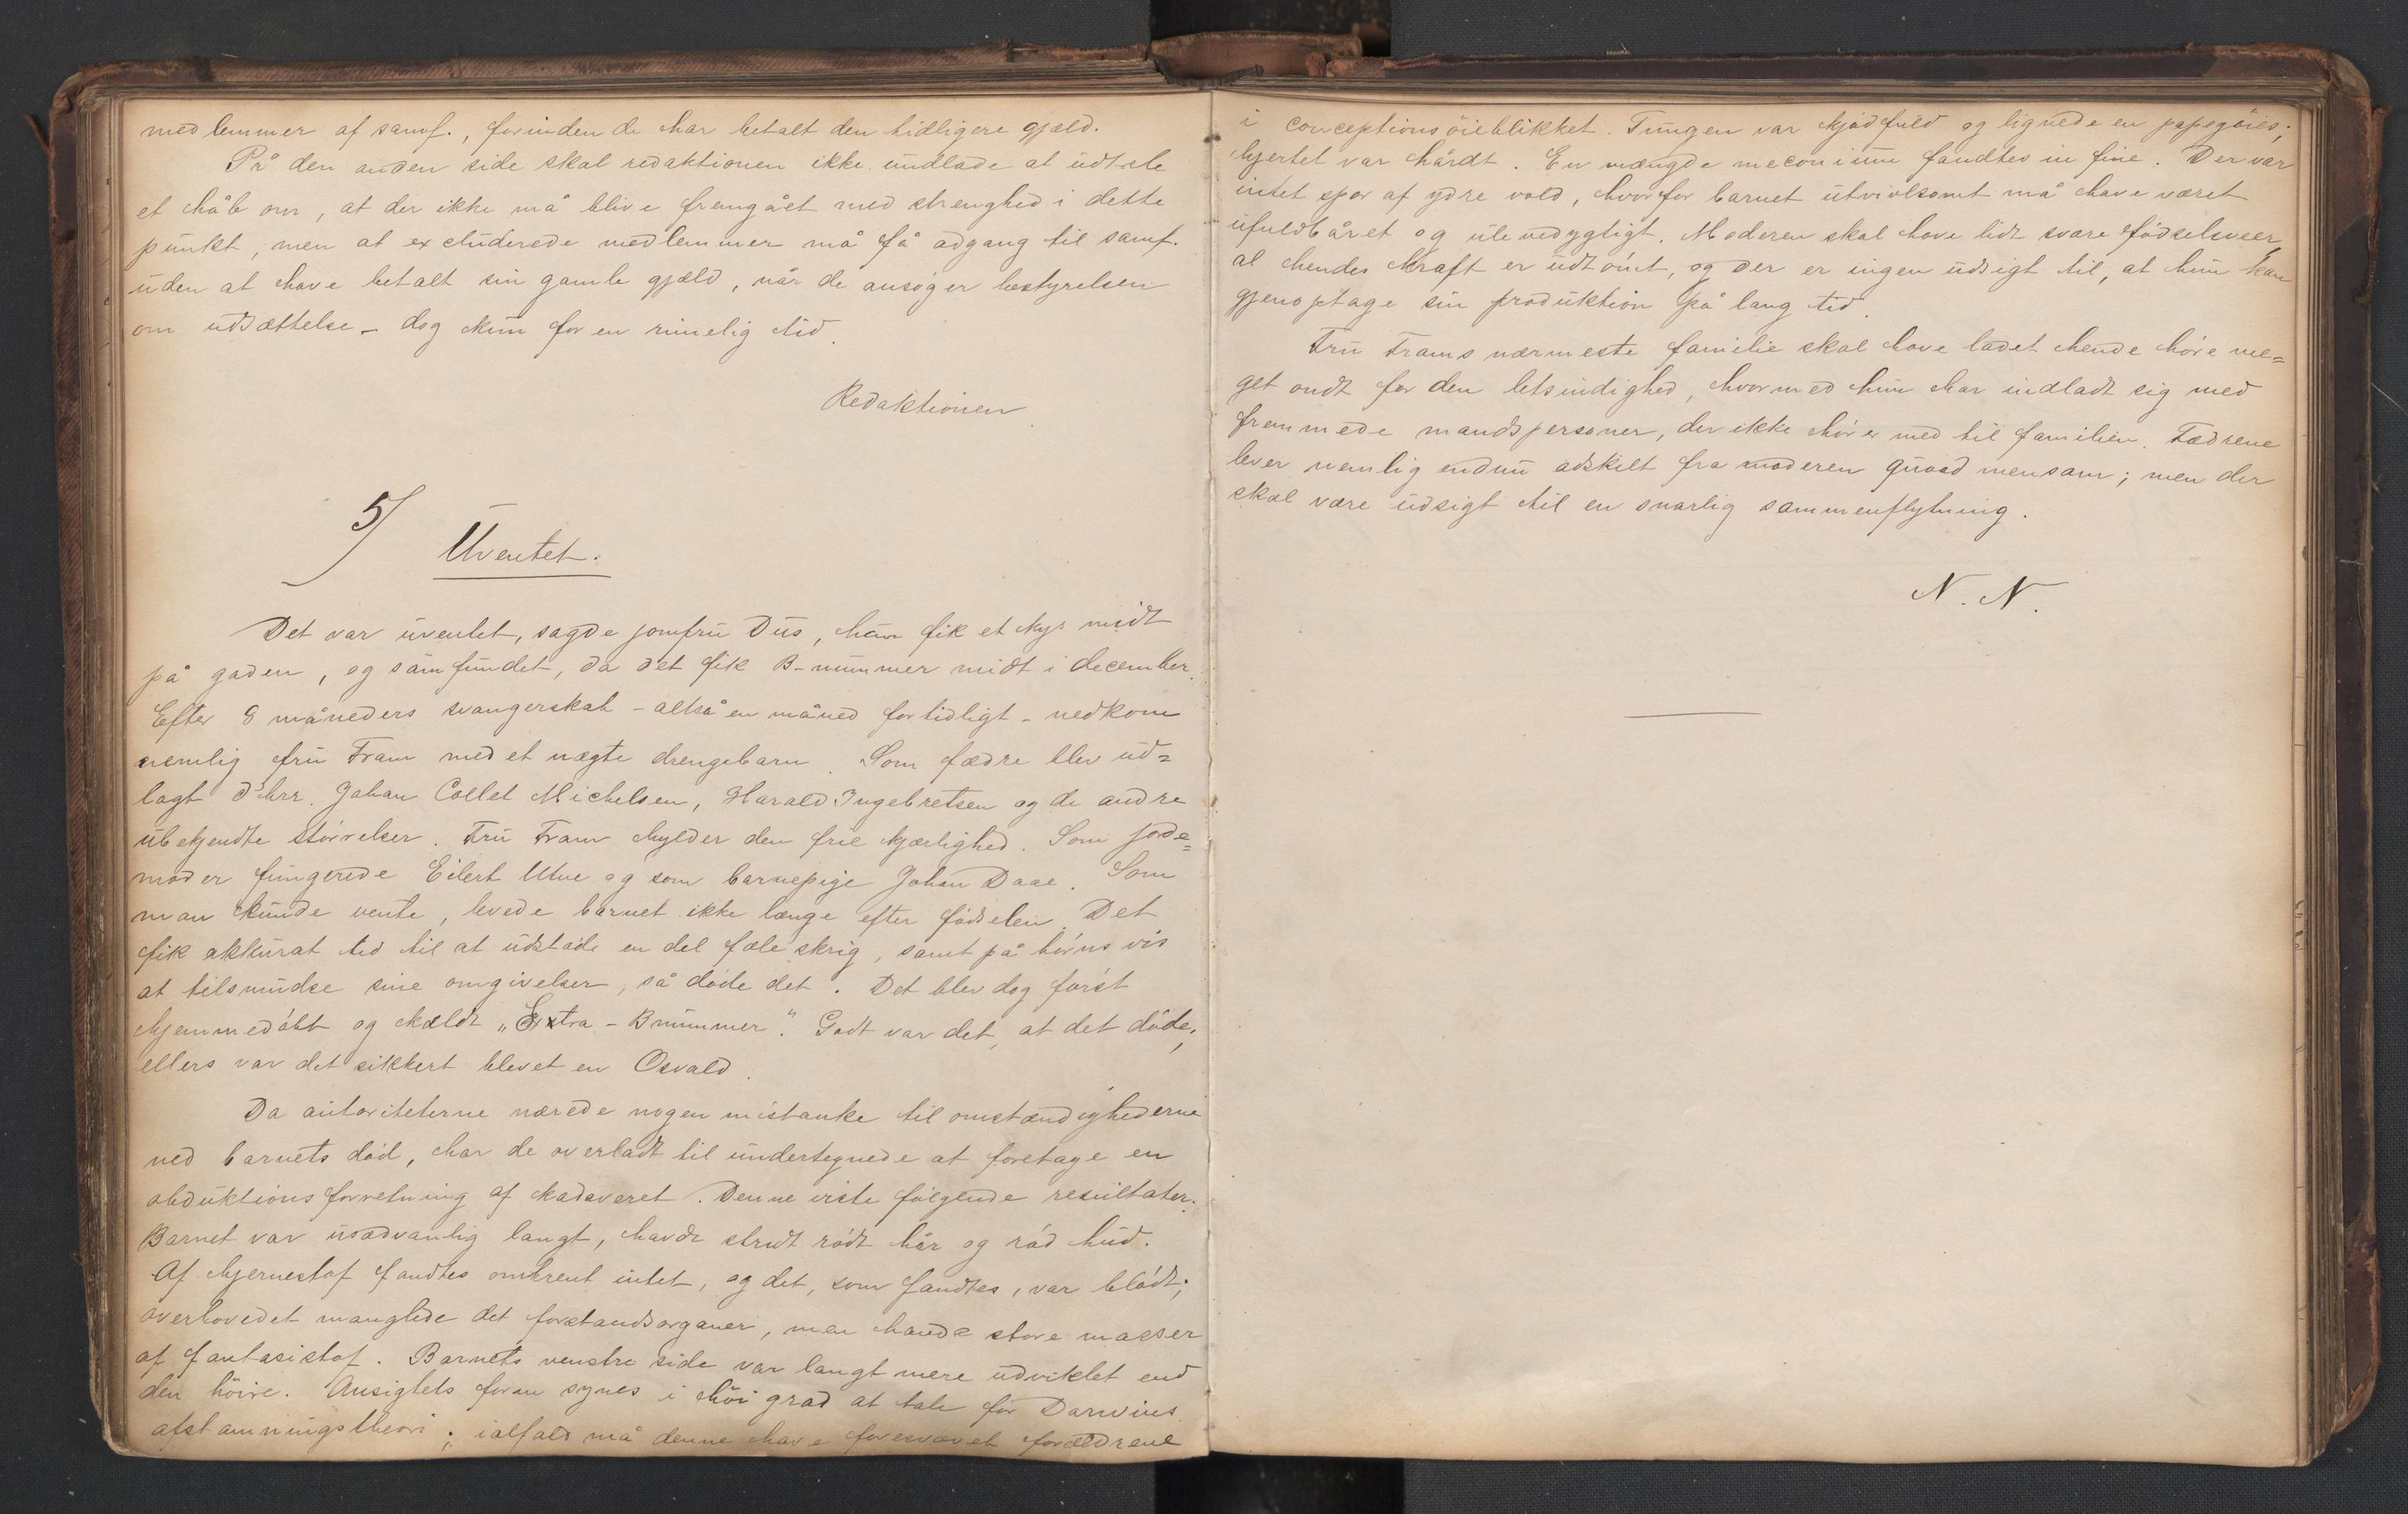 medlemmer af samf., forinden de har betalt den tidligere gjæld.
På den anden side skal redaktionen ikke undlade at udtale
et håb om, at der ikke må blive fremgået med strenghed i dette
punkt, men at excluderede medlemmer må få adgang til samf.
uden at have betalt sin gamle gjæld, når de ansøger bestyrelsen
om udsættelse - dog kun for en rimelig tid.
Redaktionen
5/ Uventet.
Det var uventet, sagde jomfru Dus, hun fik et kys midt
på gaden, og samfundet, da det fik B-nummer midt i december.
Efter 8 måneders svangerskab - altså en måned for tidligt - nedkom
nemlig fru Fram med et uægte drengebarn. Som fædre blev ud=
lagt d'hrr. Johan Collet Michelsen, Harald Ingebretsen og de andre
ubekjendte størrelser. Fru Fram hylder den frie kjærlighed. Som jorde=
moder fungerede Eilert Utne og som barnepige Johan Daae. Som
man kunde vente, levede barnet ikke længe efter fødselen. Det
fik akkurat tid til at udstøde en del fæle skrig, samt på børns vis
at tilsmudse sine omgivelser, så døde det. Det blev dog først
hjemmedøbt og kaldt „Extra-B nummer". Godt var det, at det døde;
ellers var det sikkert blevet en Osvald.
Da autoriteterne nærede nogen mistanke til omstændighederne
ved barnets død, har de overladt til undertegnede at foretage en
obduktionsforretning af kadaveret. Denne viste følgende resultater.
Barnet var usædvanlig langt, havde stridt rødt hår og rød hud.
Af hjernestof fandtes omtrent intet, og det, som fandtes, var blødt;
overhovedet manglede det forstandsorganer, men havde store masser
af fantasistof. Barnets venstre side var langt mere udviklet end
den høire. Ansigtets form synes i høi grad at tale for Darwins
afstamningstheori; ialfald må denne have foresvævet forældrene
i conceptionsøieblikket. Tungen var kjødfuld og lignede en papegøies;
hjertet var hårdt. En mængde meconium fandtes in fine. Der var
intet spor af ydre vold, hvorfor barnet utvivlsomt må have været
ufuldbåret og ulevedygtigt. Moderen skal have lidt svare fødselsveer,
al hendes kraft er udtømt, og der er ingen udsigt til, at hun kan
gjenoptage sin produktion på lang tid.
Fru Frams nærmeste familie skal have ladet hende høre me=
get ondt for den letsindighed, hvormed hun har indladt sig med
fremmede mandspersoner, der ikke hører med til familien. Fædrene
lever nemlig endnu adskilt fra moderen quoad mensam; men der
skal være udsigt til en snarlig sammenflytning.
N. N.